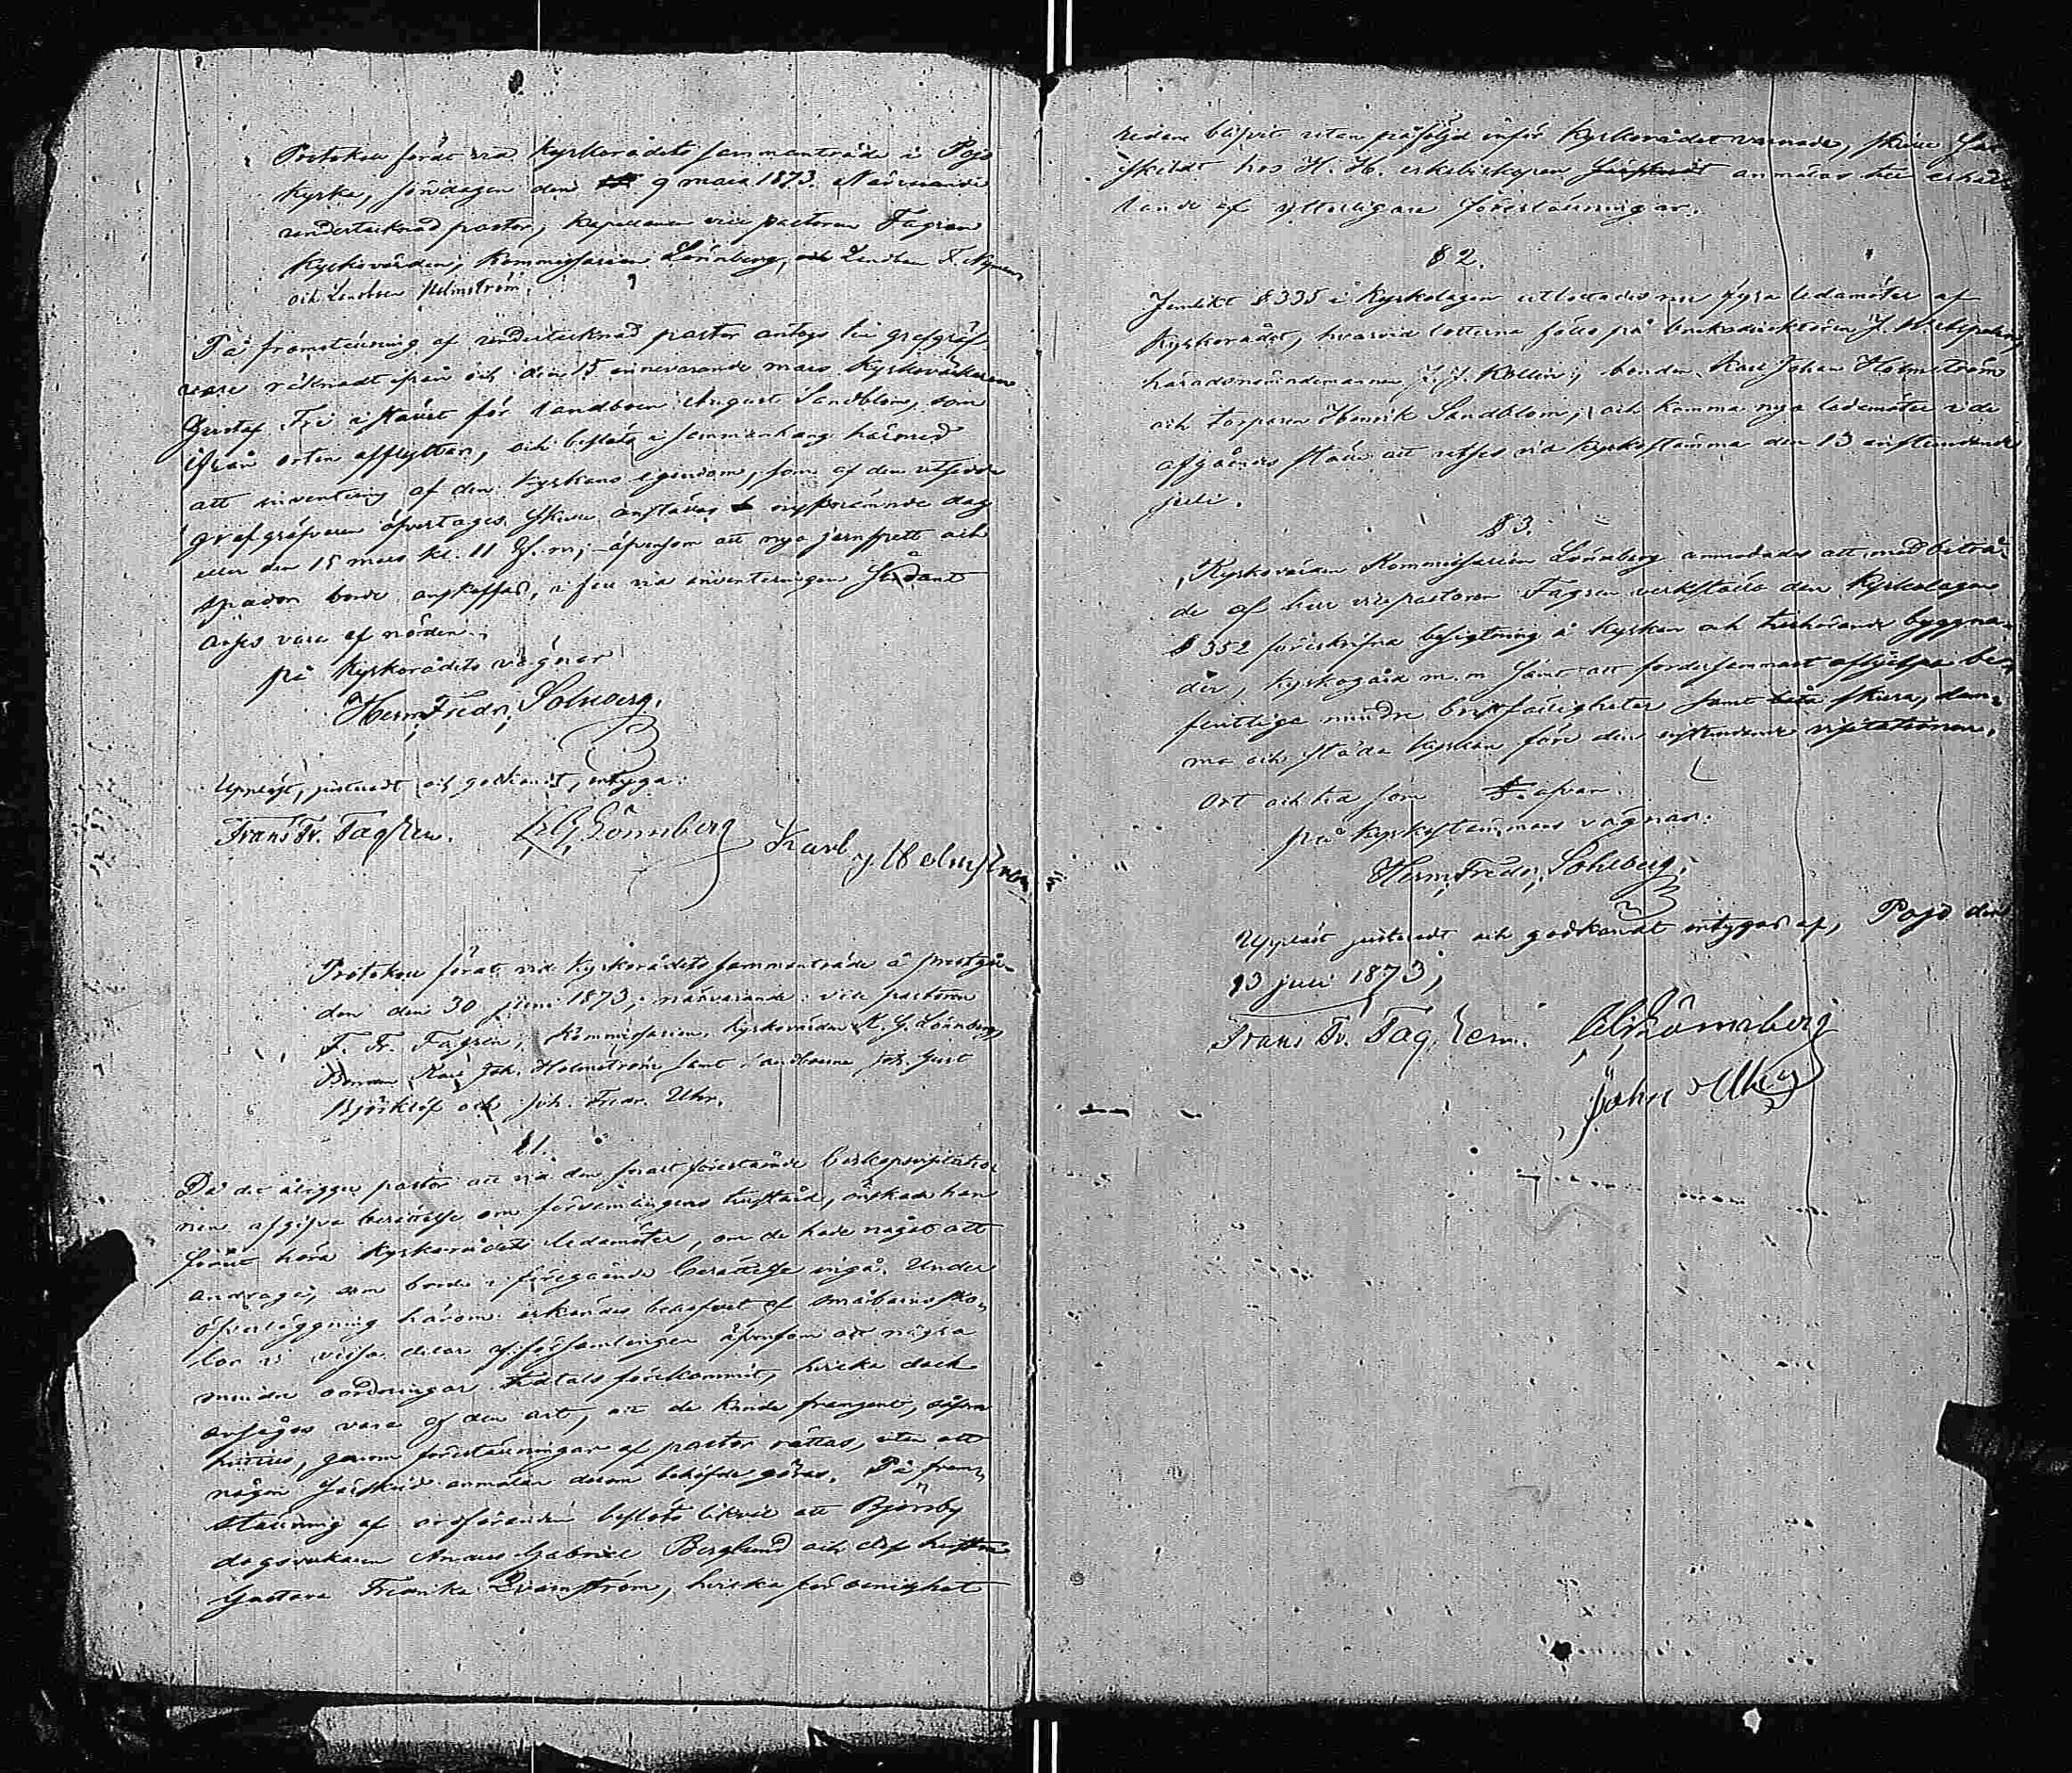 Protokoll fördt vid Kyrkorådets sammanträde i Pojo
kyrka, söndagen den 9 mars 1873. Närvarande
undertecknad pastor, Kapellanen vice pastoren Fagren
Kyrkovärden, Kommissarien Lönnberg, Landboen F. Nyman
och Landboen Holmström.
På framställning af undertecknad pastor antogs till grafgräf-
vare räknadt ifrån och den 15 innevarande mars Kyrkoväktaren
Gustaf Fri i stället för landboen August Sandblom, som
ifrån orten afflyttar, och beslöts i sammanhang härmed
att inventering af den kyrkans egendom, som af den utsedde
grafgräfvaren öfvertages skulle anställas nyssnämnde dag
eller den 15 mars kl. 11 f.m; äfvensom att nya jernspett och
spador borde anskaffas, i fall vid inventeringen sådant
anses vara af nöden.
på Kyrkorådets vägnar
Herm. Fredr. Sohlberg.
Uppläst, justeradt och godkändt, intyga:
Frans Fr. Fagren. K G Lönnberg Karl J. Holmström
Protokoll fördt vid Kyrkorådets sammanträde å prestgår-
den den 30 juni 1873, närvarande: vice pastoren
F. Fr. Fagren, Kommissarien, kyrkovärden K. G. Lönnberg,
Bonden Karl Joh. Holmström samt landboerne Joh. Gust
Björklöf och Joh. Fredr. Uhr.
§ 1.
Då det åligger pastor att vid den snart förestående biskopsvisitatio-
nen afgifva berättelse om församlingens tillstånd, önskade han
förut höra Kyrkorådets ledamöter, om de hade något att
andraga, som borde i föregående berättelse ingå. Under
öfverläggning härom erkändes behofvet af småbarnsko-
lor i vissa delar af församlingen äfvensom att några
mindre oordningar tidtals förekommit, hvilka dock
ansågos vara af den art, att de kunde framgent, såsom
hittills, genom föreställningar af pastor rättas, utan att
någon särskild anmälan derom behöfde göras. På fram-
ställning af ordföranden beslöts likväl att Björsby
dagsverkaren Anders Gabriel Berglund och dess hustru
Gustava Fredrika Qvarnström, hvilka för oenighet
redan blifvit utan påföljd inför Kyrkorådet varnade, skulle sär-
skildt hos H. H. erkebiskopen anmälas till erhål-
lande af ytterligare föreställningar.
§ 2.
Jemlikt § 335 i Kyrkolagen utlottades nu fyra ledamöter af
Kyrkorådet, hvarvid lotterna föllo på bruksdirektören J.
häradsnämndemannen J. J. Kollin, bonden Karl Johan Holmström
och torparen Henrik Sandblom; och komma nya ledamöter i de
afgåendes ställe att utses vid Kyrkostämma den 13 instundande
juli.
§ 3.
Kyrkovärden Kommissarien Lönnberg anmodades att med biträ-
de af herr vicepastoren Fagren verkställa den Kyrkolagens
§ 352 föreskrifna besigtning å Kyrkan och tillhörande byggna-
der, Kyrkogård m. m samt att fordersammast afhjelpa be-
fintliga mindre bristfälligheter samt låta skura, dam-
ma och städa Kyrkan före den instundande visitationen.
Ort och tid som ofvan.
på Kyrkostämmans vägnar.
Herm. Fredr. Sohlberg.
Uppläst justeradt och godkändt intygas af, Pojo den
13 juli 1873,
Frans Fr. Fagren. K G Lönnberg
Johan Uhr